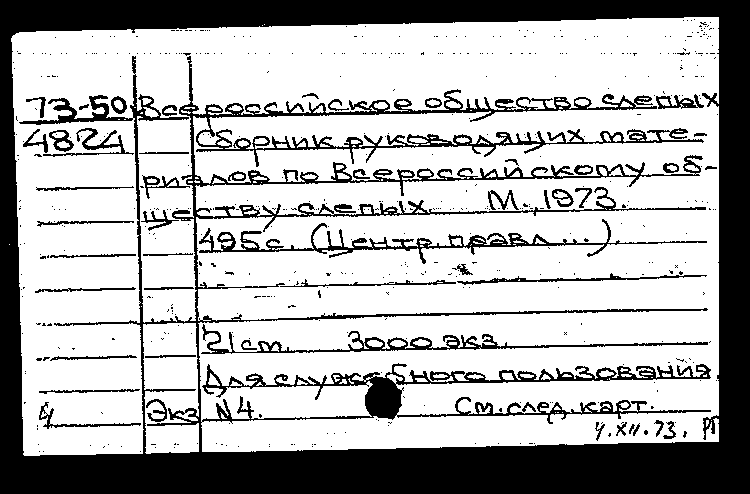 73-50 Всероссийское общество слепых
4824 Сборник руководящих мате-
риалов по Всероссийскому об-
ществу слепых. М., 1973.
495 с. (Центр. правл...).
21 см. 3000 экз.
Для служебного пользования.
4 Экз N 4. См. след. карт.
4.XII.73.